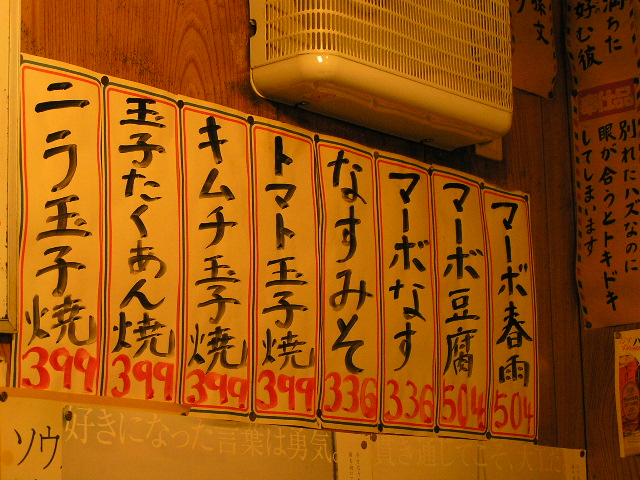 満ちた
好む彼
別れにバスなのに
眼が合うとトキドキ
してしまいます
マーボ春雨
504
マーボ豆腐
504
マーボなす
336
なすみそ
336
トマト玉子焼
399
キムチ玉子焼
399
玉子たくあん焼
399
ニラ玉子焼
399
ソウ
好きになった言葉は勇気。